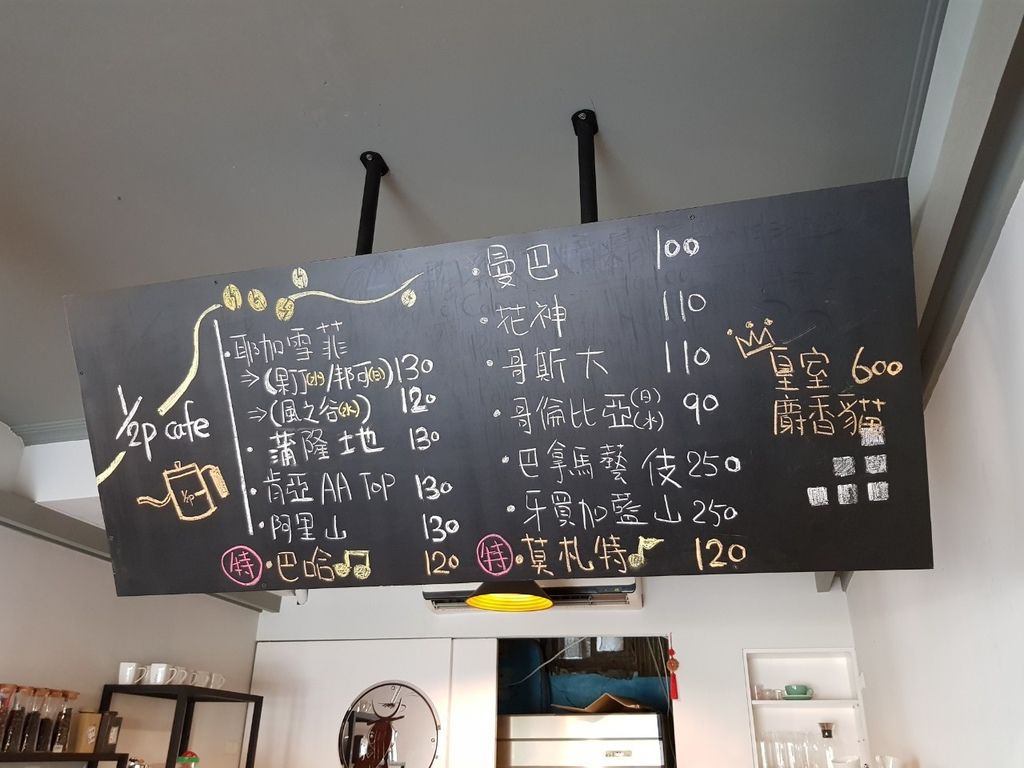 1/2p cafe
1/2p
·耶加雪菲
⇒(果丁(沙)/邦可(日)) 130
⇒(風之谷(水)) 120
·蒲隆地 130
·肯亞 AA TOP 130
·阿里山 130
特·巴哈 120
·曼巴 100
·花神 110
·哥斯大 110
·哥倫比亞(日)(水) 90
·巴拿馬藝伎 250
·牙買加藍山 250
特·莫札特 120
皇室 600
麝香貓